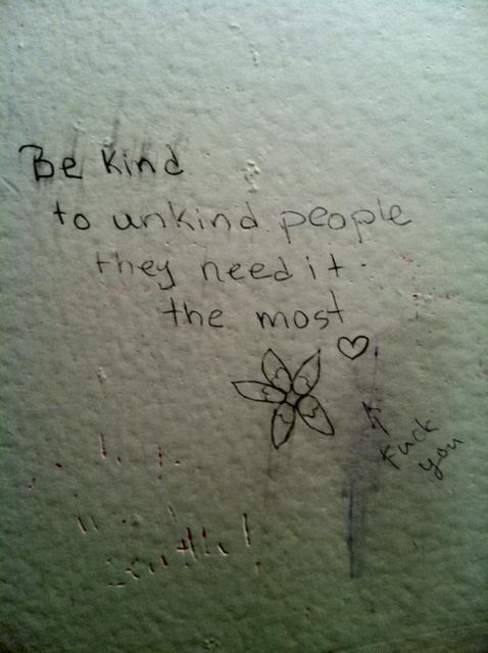 Be Kind
to unkind people
they need it
the most
Fuck
you